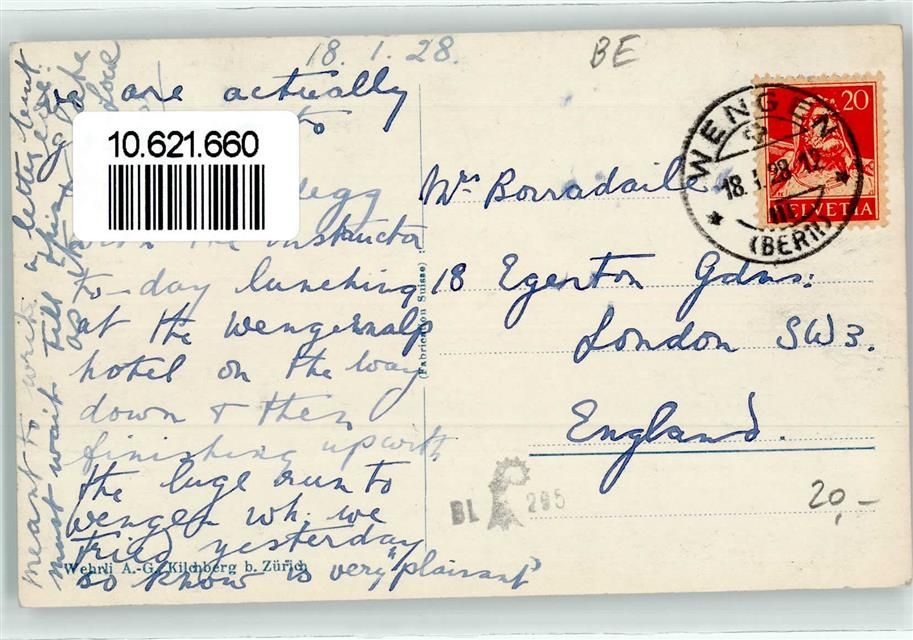 18.1.28.
BE
we are actually
to
10.621.660
egg
with the instructor
to-day lunching
at the wengernalp
hotel on the way
down & then
finishing up with
the luge run to
wengen wh: we
tried yesterday
so know is very "plaisant"
meant to write a letter but
must wait till
Mrs Borradaile
18 Egerton Gdns:
London SW3.
England.
WENGEN
18.1.28.12
(BERN)
20
HELVETIA
(Fabrication Suisse)
BL 295
20,-
Wehrli A.-G., Kilchberg b. Zürich